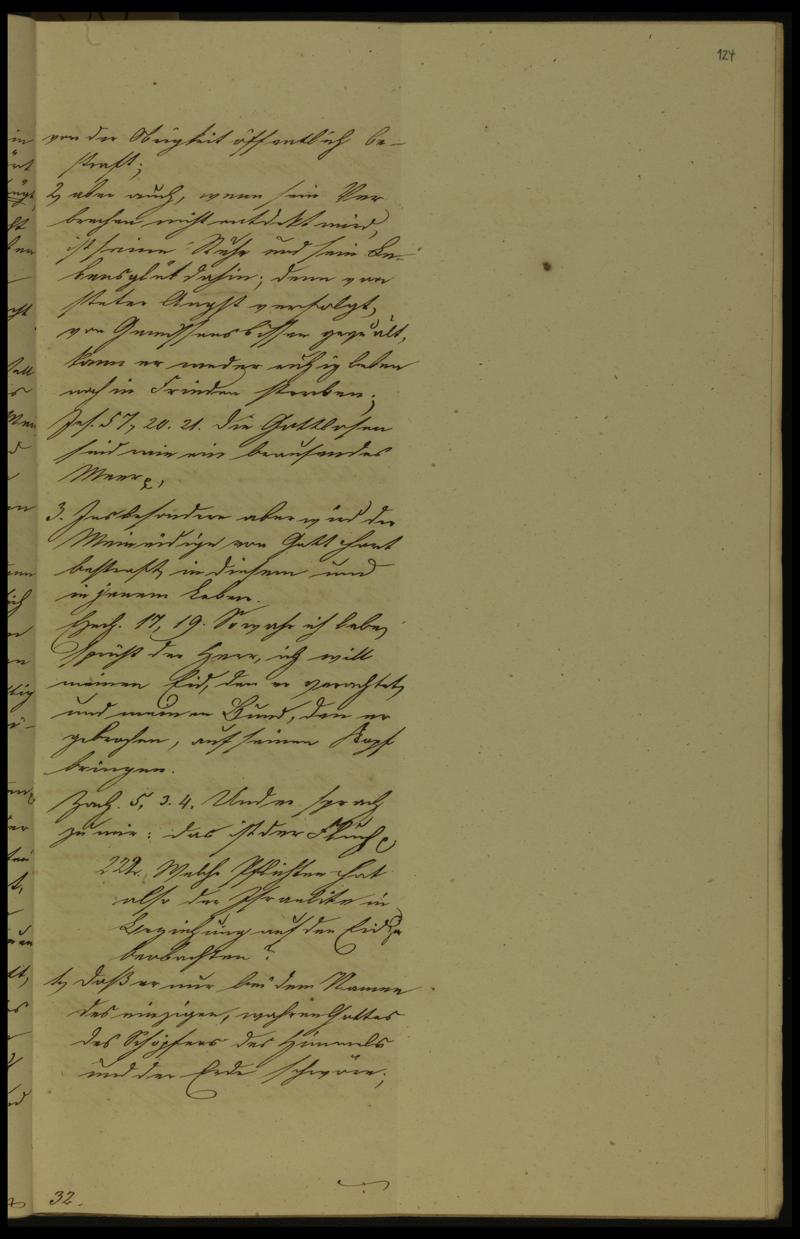 124
von der Obrigkeit öffentlich be-
straft;
2, aber auch, wenn sein Ver
brechen nicht entdekt wird,
ist seine Ruhe und sein Le-
bensglük dahin; denn von
steter Angst verfolgt,
von Gewissensbissen gequält,
kann er weder ruhig leben
noch in Frieden sterben;
Jes. 57, 20. 21. Die Gottlosen
sind wie ein brausendes
Meer
3. Insbesondere aber wird der
Meineidige von Gott hart
bestraft, in diesem und
in jenem Leben.
Ezech. 17, 19. So wahr ich lebe,
spricht der Herr, ich will
meinen Eid, den er verachtet,
und meinen Bund, den er
gebrochen, auf seinen Kopf
bringen.
Zach. 5, 3. 4. Und er sprach
zu mir: das ist der Fluch
222. Welche Pflichten hat
also der Israelite in
Beziehung auf den Eid zu
beobachten?
1, Daß er nur bei dem Namen
des einzigen, wahren Gottes
des Schöpfers des Himmels
und der Erde schwöre;
32.